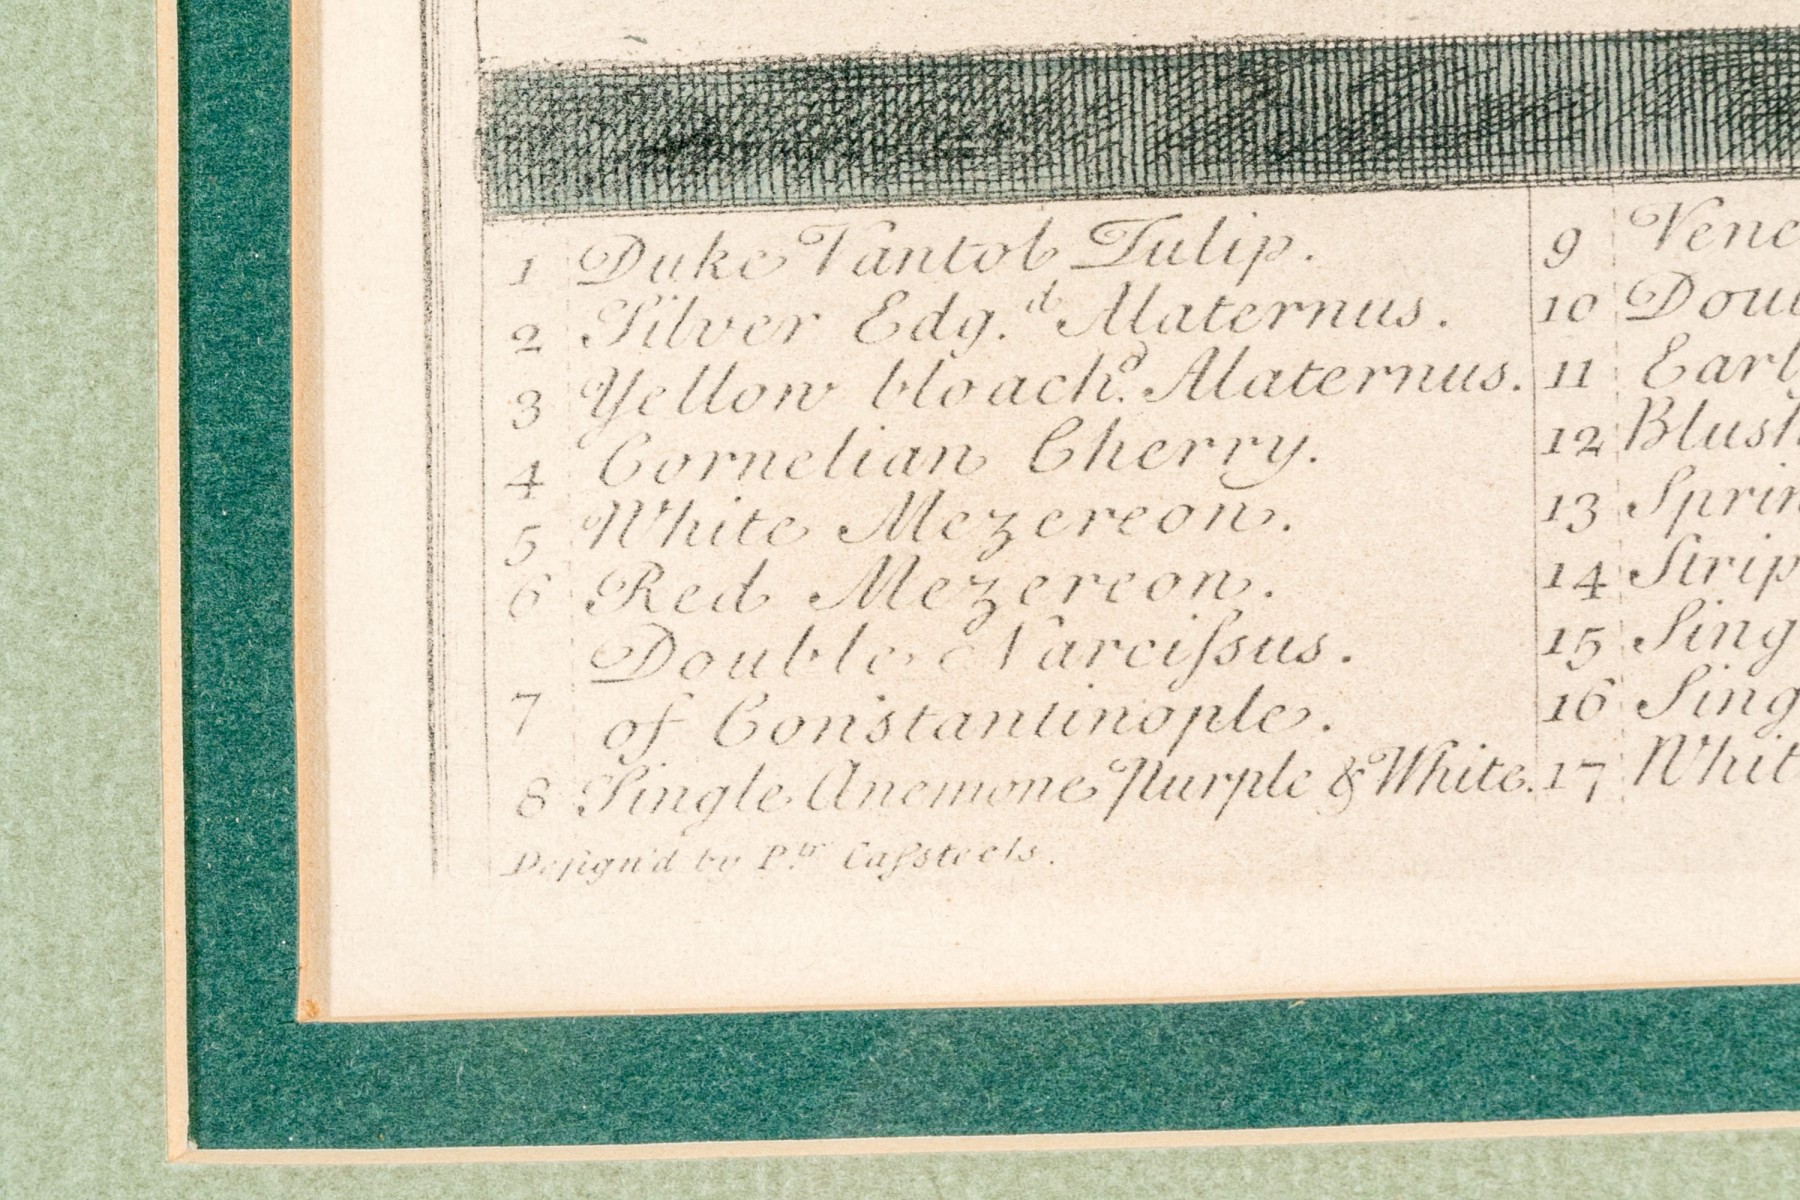 1 Duke Vantol Tulip.
2 Silver Edg.d Alaternus.
3 Yellow bloach.d Alaternus.
4 Cornelian Cherry.
5 White Mezereon.
6 Red Mezereon.
7 Double Narciſsus.
of Constantinople.
8 Single Anemone Purple & White.
Deſign'd by P.tr Caſsteels.
9 Vene
10 Dou
11 Earl
12 Blush
13 Sprin
14 Strip
15 Sing
16 Sing
17 Whit